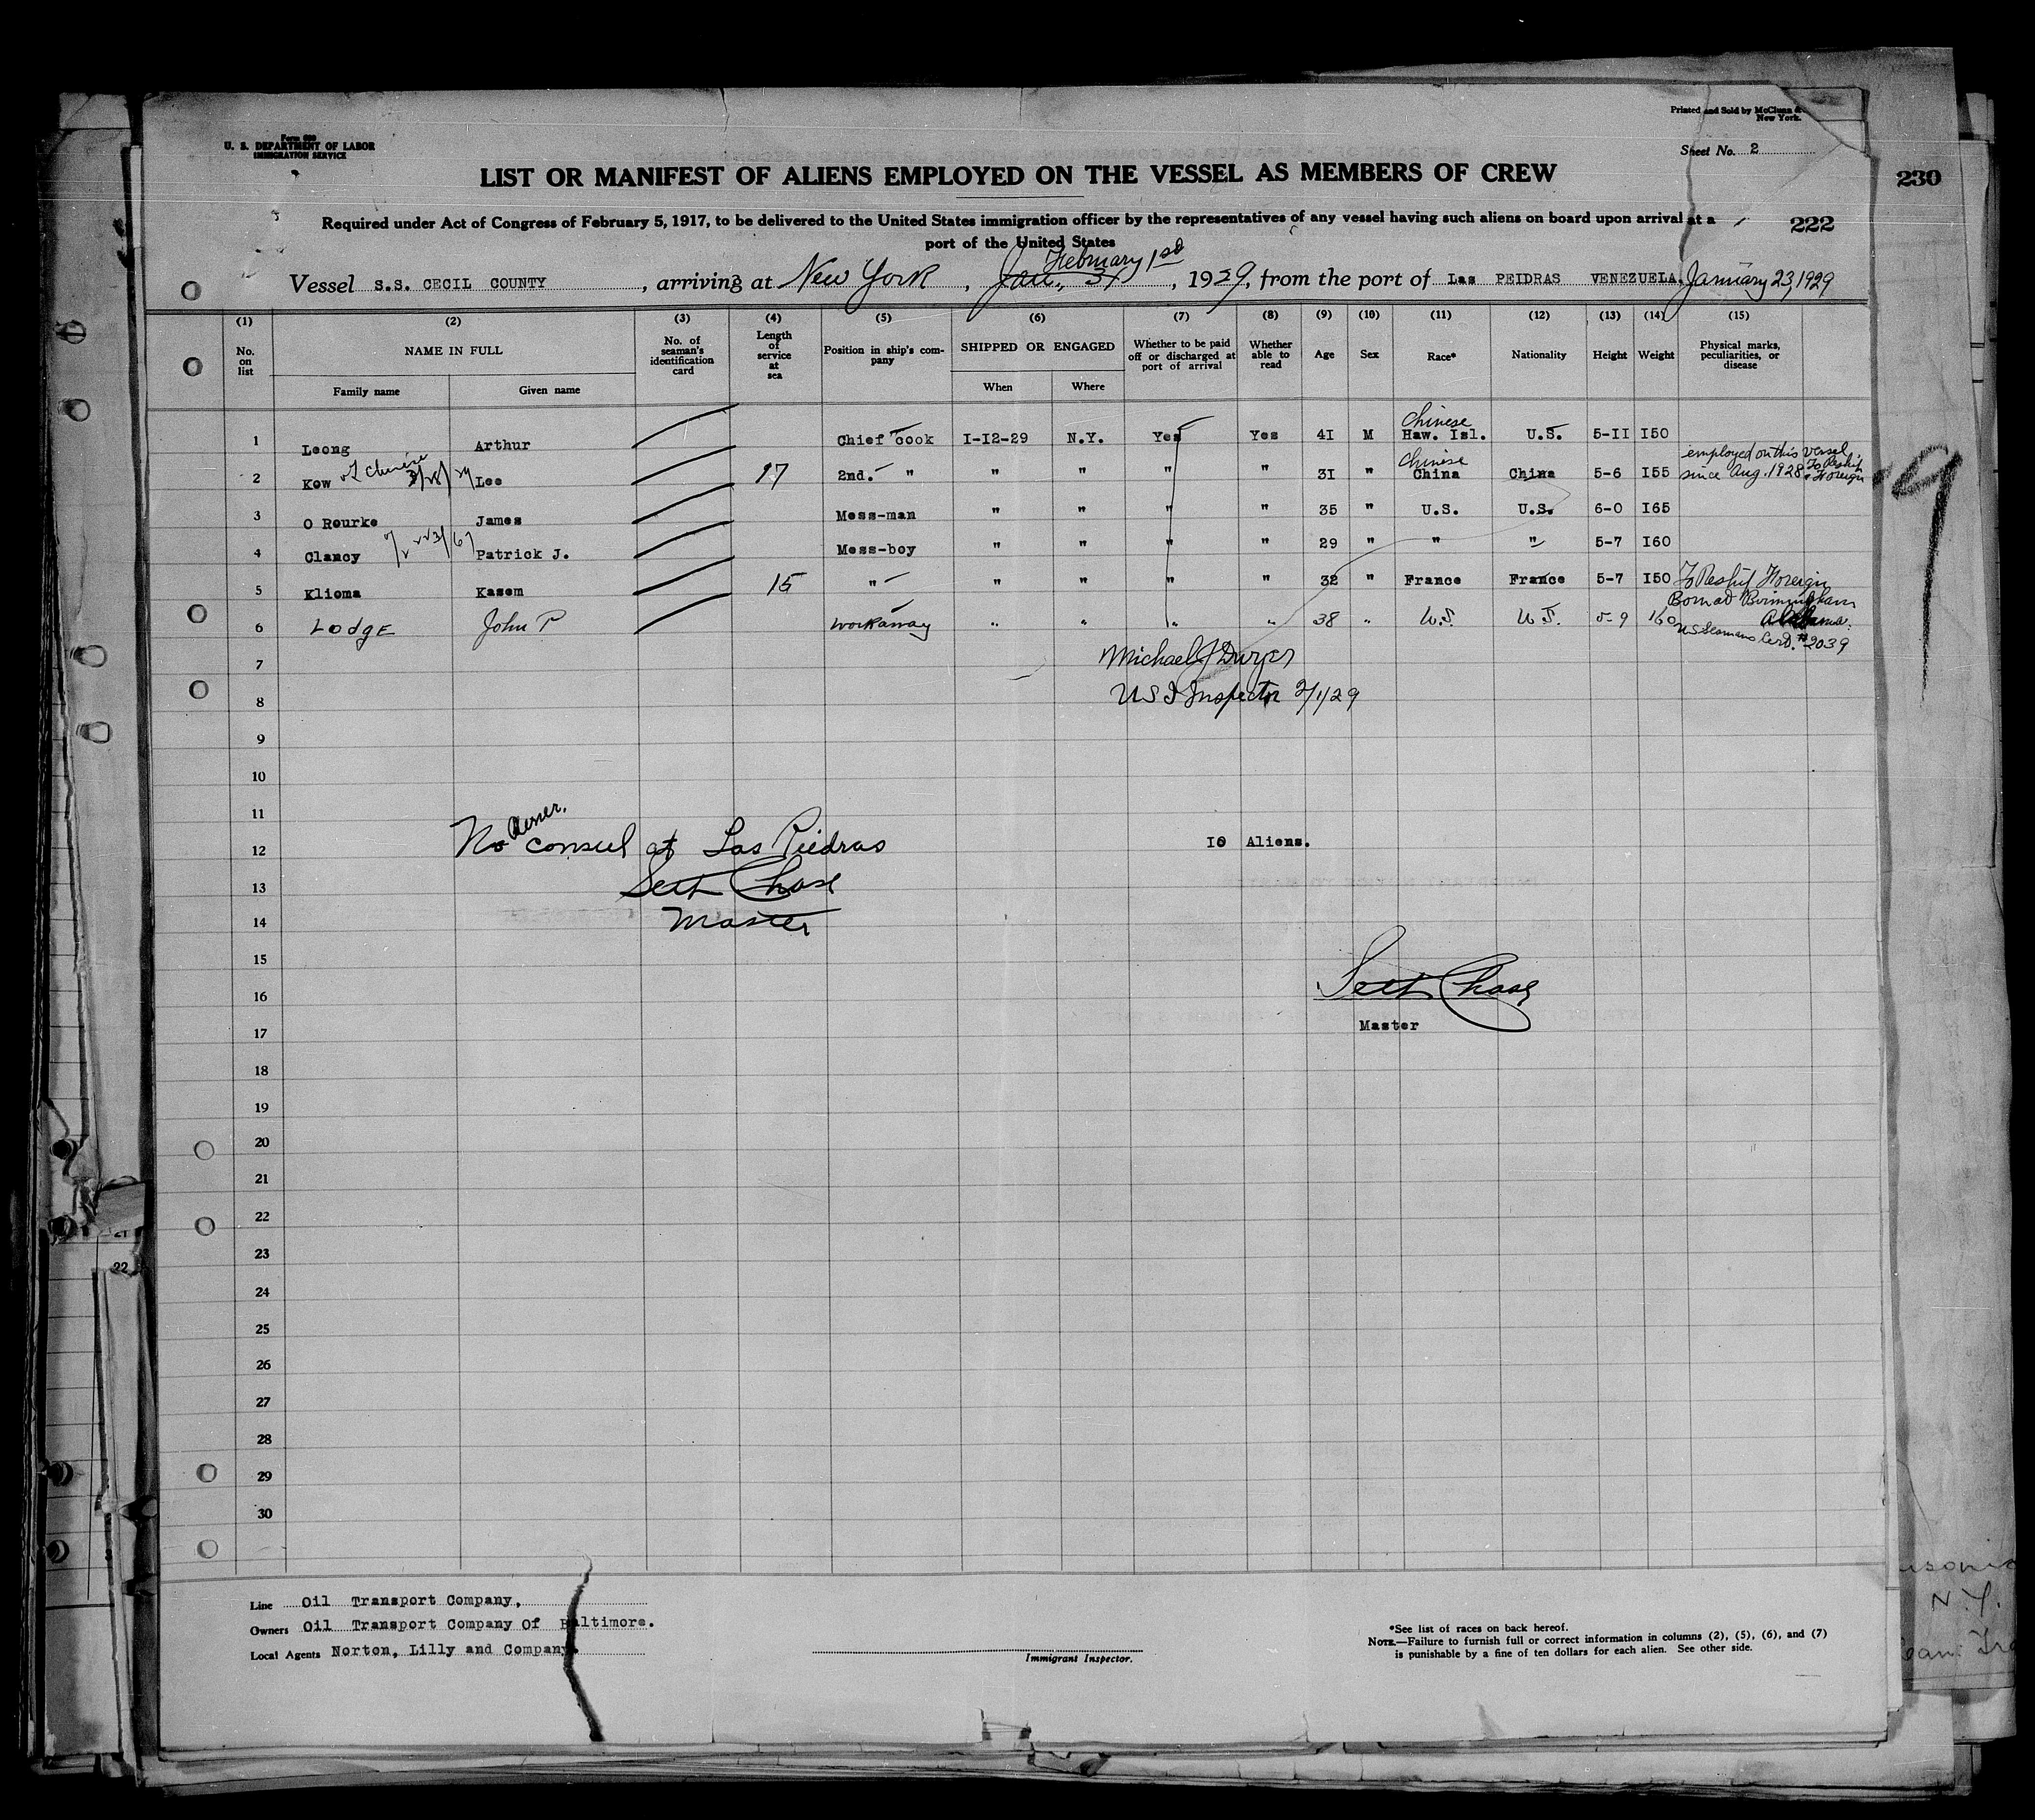 Form 680
U. S. DEPARTMENT OF LABOR
IMMIGRATION SERVICE
Printed and Sold by McClunn &
New York.
Sheet No. 2
LIST OR MANIFEST OF ALIENS EMPLOYED ON THE VESSEL AS MEMBERS OF CREW
230
Required under Act of Congress of February 5, 1917, to be delivered to the United States immigration officer by the representatives of any vessel having such aliens on board upon arrival at a
port of the United States
222
February 1st
Vessel S.S. CECIL COUNTY, arriving at New York, Jan. 31, 1929, from the port of Las PEIDRAS VENEZUELA. January 23, 1929
(1) (2) (3) (4) (5) (6) (7) (8) (9) (10) (11) (12) (13) (14) (15)
No. on list
NAME IN FULL
Family name
Given name
No. of seaman's identification card
Length of service at sea
Position in ship's company
SHIPPED OR ENGAGED
When
Where
Whether to be paid off or discharged at port of arrival
Whether able to read
Age
Sex
Race*
Nationality
Height
Weight
Physical marks, peculiarities, or disease
Chinese
1 Leong Arthur Chief cook I-I2-29 N.Y. Yes Yes 4I M Haw. Isl. U.S. 5-II I50
Chinese
employed on this vessel
since Aug. 1928. To Reship Foreign
2 Kow Lee 17 2nd. " " " " " 3I " China China 5-6 I55
3 O Rourke James Mess-man " " " " 35 " U.S. U.S. 6-0 I65
4 Clancy Patrick J. Mess-boy " " " " 29 " " " 5-7 I60
5 Klioma Kasem 15 " " " " " 32 " France France 5-7 I50 To Reship Foreign
6 Lodge John P workaway " " " " 38 " U.S. U.S. 5-9 160 Born at Birmingham
Alabama.
US Seamans Cert. #2039
7
8
Michael J Dwyer
US I Inspector 2/1/29
9
10
11
Amer.
12 No consul at Las Piedras
I0 Aliens.
13 Seth Chase
14 Master
15
16 Seth Chase
17 Master
18
19
20
21
22
23
24
25
26
27
28
29
30
9
21
22
Line Oil Transport Company,
Owners Oil Transport Company Of Baltimore.
Local Agents Norton, Lilly and Company.
Immigrant Inspector.
*See list of races on back hereof.
NOTE.—Failure to furnish full or correct information in columns (2), (5), (6), and (7)
is punishable by a fine of ten dollars for each alien. See other side.
N.Y.